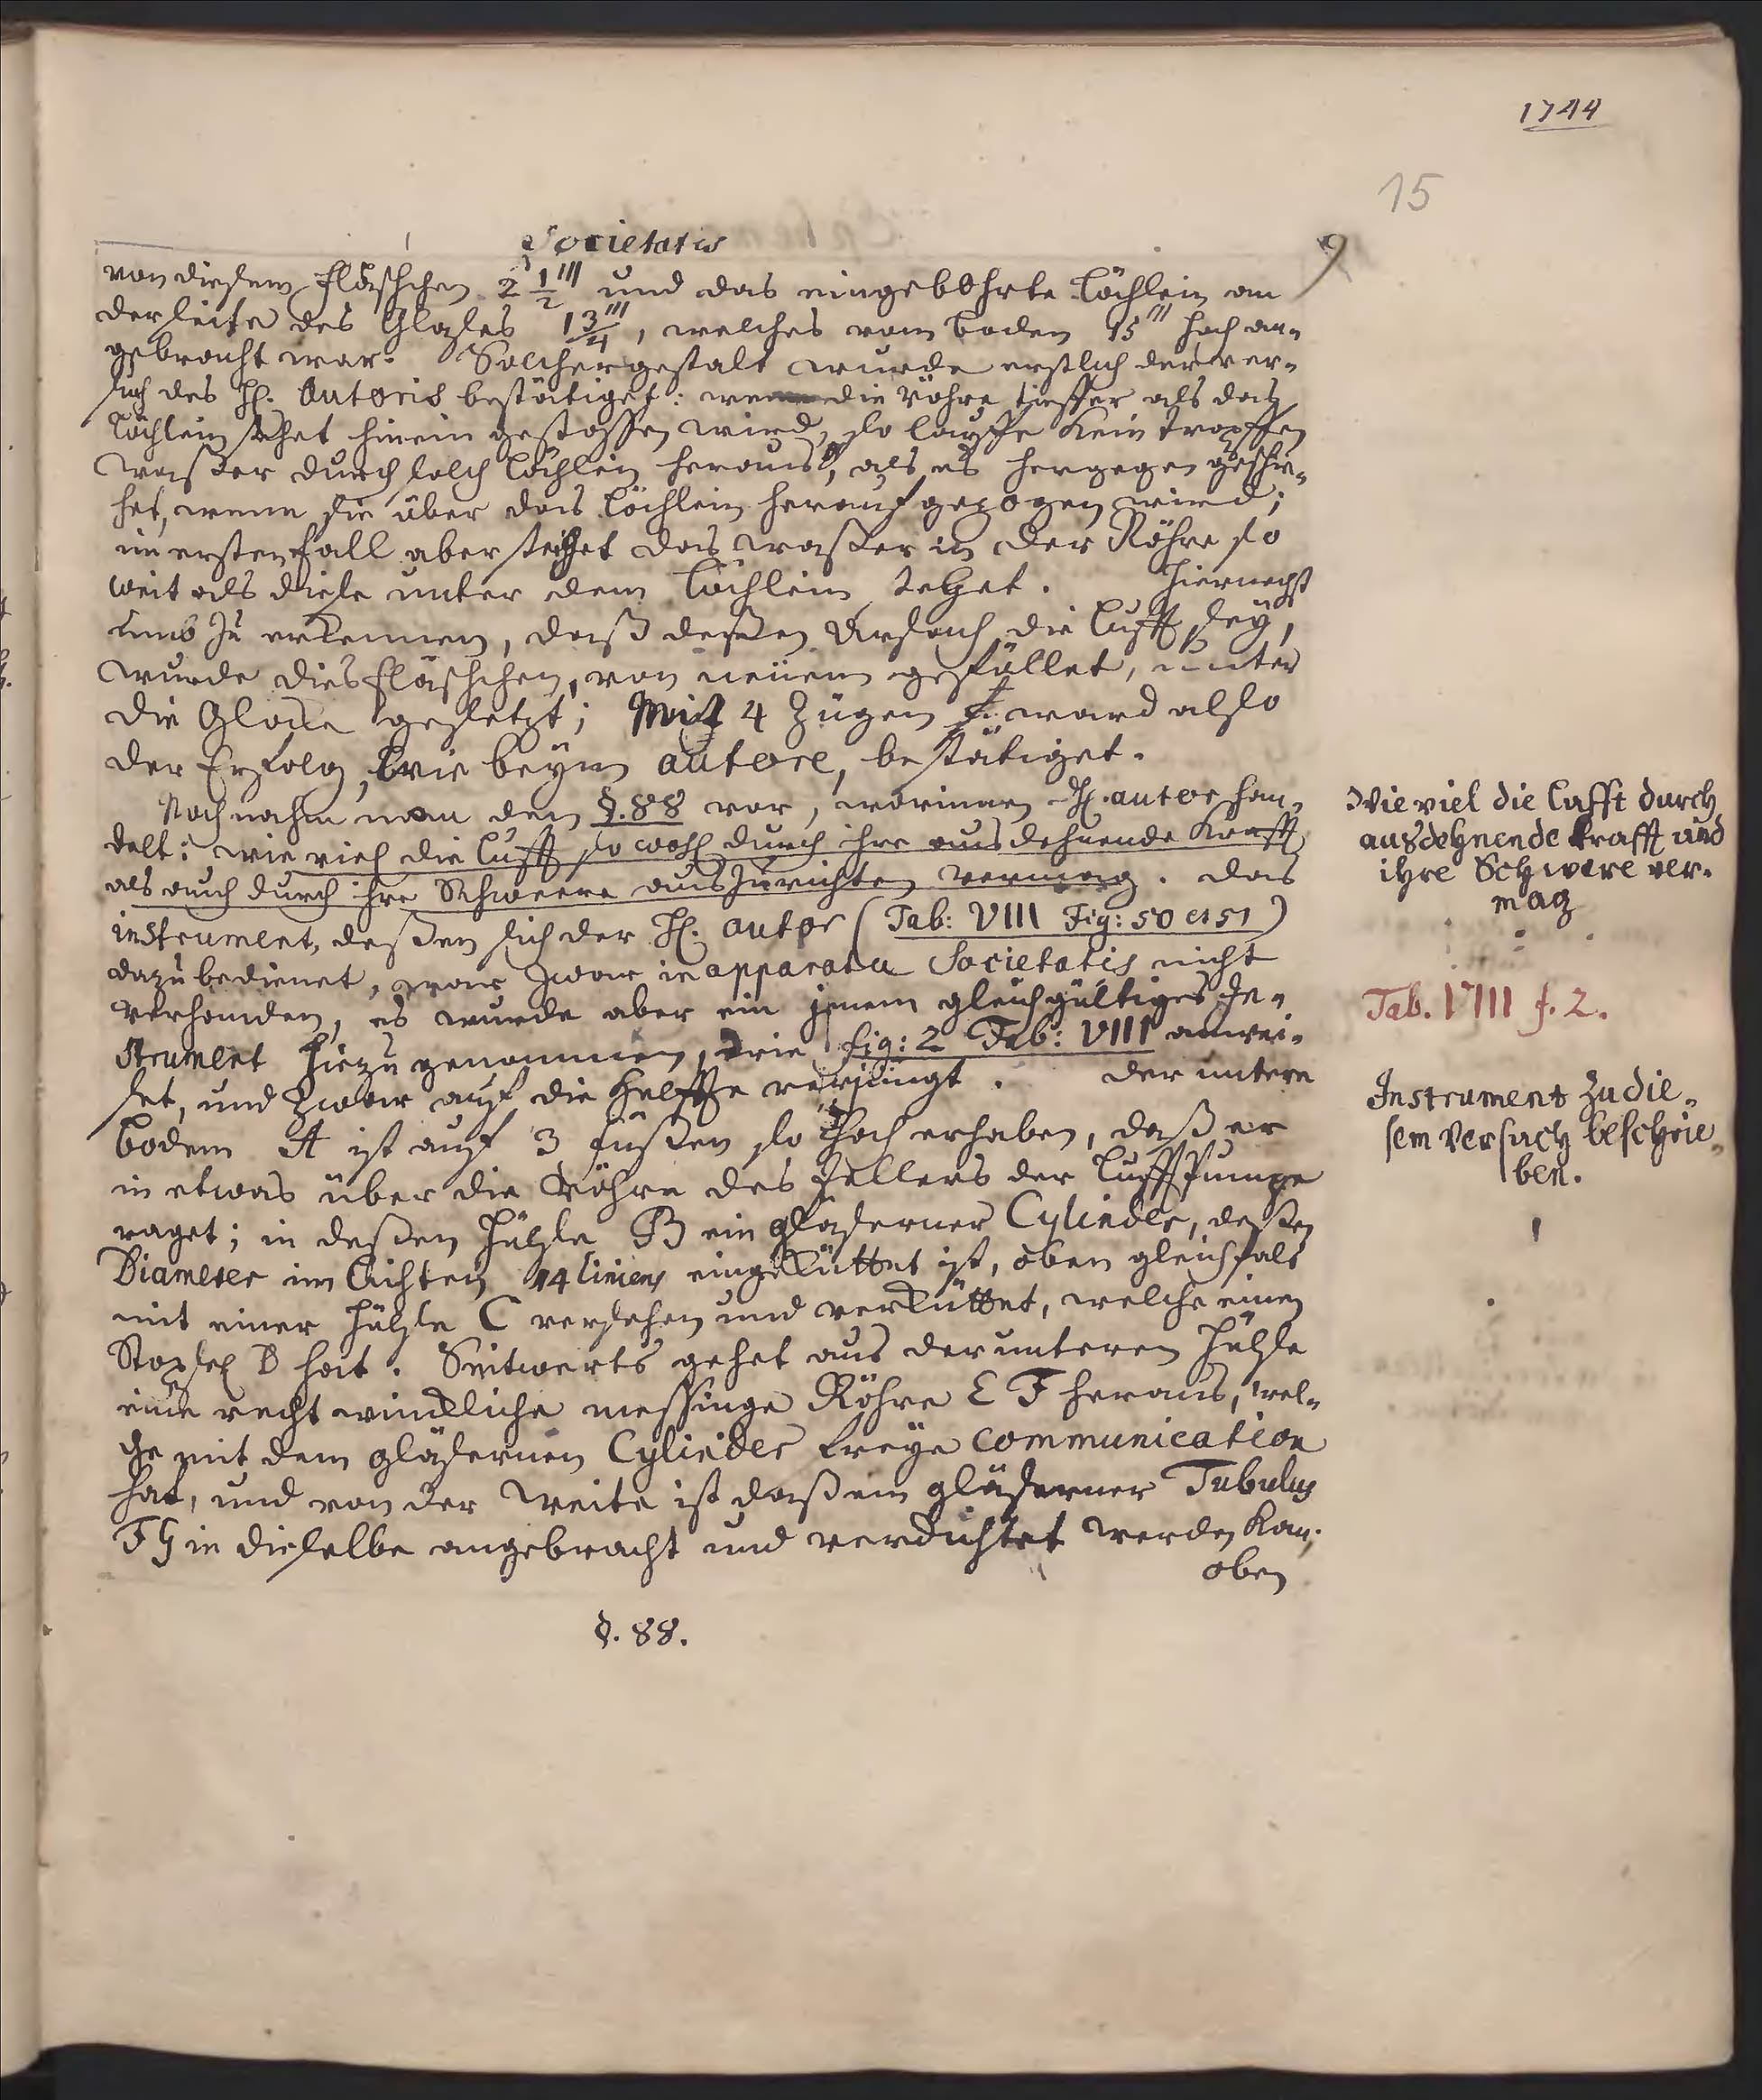 1744
15
Societatis
9
von diesem Fläschchen 2 1/2''' und das eingebohrte Löchlein an
der seite des Glases 1 3/4''', welches vom boden 15''' hoch an-
gebracht war. Solchergestalt wurde erstlich der ver-
such des H. Autoris bestätiget: wenn die röhre tieffer als das
Löchlein stehet hinein gestossen wird, so lauffe kein tropffen
wasser durch solch Löchlein heraus, als es hergegen geschie-
het, wenn sie über das Löchlein herauf gezogen wird;
im ersten fall aber steiget das wasser in der Röhre so
weit als diese unter dem Löchlein stehet. Hiernechst
umb zu erkennen, daß deßen Ursach die Lufft seÿ,
wurde dies Fläschchen, von neüem gefüllet, unter
die Glocke gesetzt; Mit 4 Zügen ward also
der Erfolg, wie beÿm autore, bestätiget.
Noch nahm man den §. 88 vor, worinnen H. autor han-
delt: wie viel die Lufft so wohl durch ihre ausdehnende Krafft
als auch durch ihre Schweere auszurichten vermag. das
instrument, deßen sich der H. autor (Tab: VIII Fig: 50 et 51)
dazu bedienet, war zwar in apparatu Societatis nicht
verhanden, es wurde aber ein jenem gleichgültiges In-
strument hiezu genommen, wie fig: 2 Tab: VIII anwei-
set, und zwar auf die helffte verjüngt. der untere
boden A ist auf 3 füßen so hoch erhaben, daß er
in etwas über die Röhre des Tellers der Lufftpumpe
raget; in deßen Hülse B ein gläserner Cylinder, deßen
Diameter im Lichten 14 linien eingeküttet ist, oben gleichfals
mit einer Hülse C versehen und verküttet, welche einen
Stopsel D hat. Seitwerts gehet aus der unteren Hülse
eine recht winckliche messinge Röhre E F heraus, wel-
che mit dem gläsernen Cylinder freÿe communication
hat, und von der weite ist daß ein gläserner Tubulus
F G in dieselbe angebracht und verdichtet werden kan.
oben
§. 88.
Wie viel die Lufft durch
ausdehnende krafft und
ihre Schwere ver-
mag
Tab. VIII f. 2.
Instrument zu die-
sem Versuch beschrie-
ben.